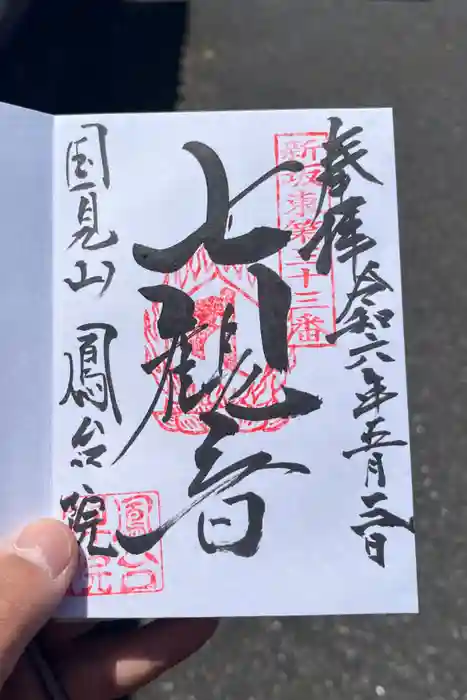 奉拝 令和六年五月三日
新坂東第三十三番
観音
国見山 鳳台院
鳳台院